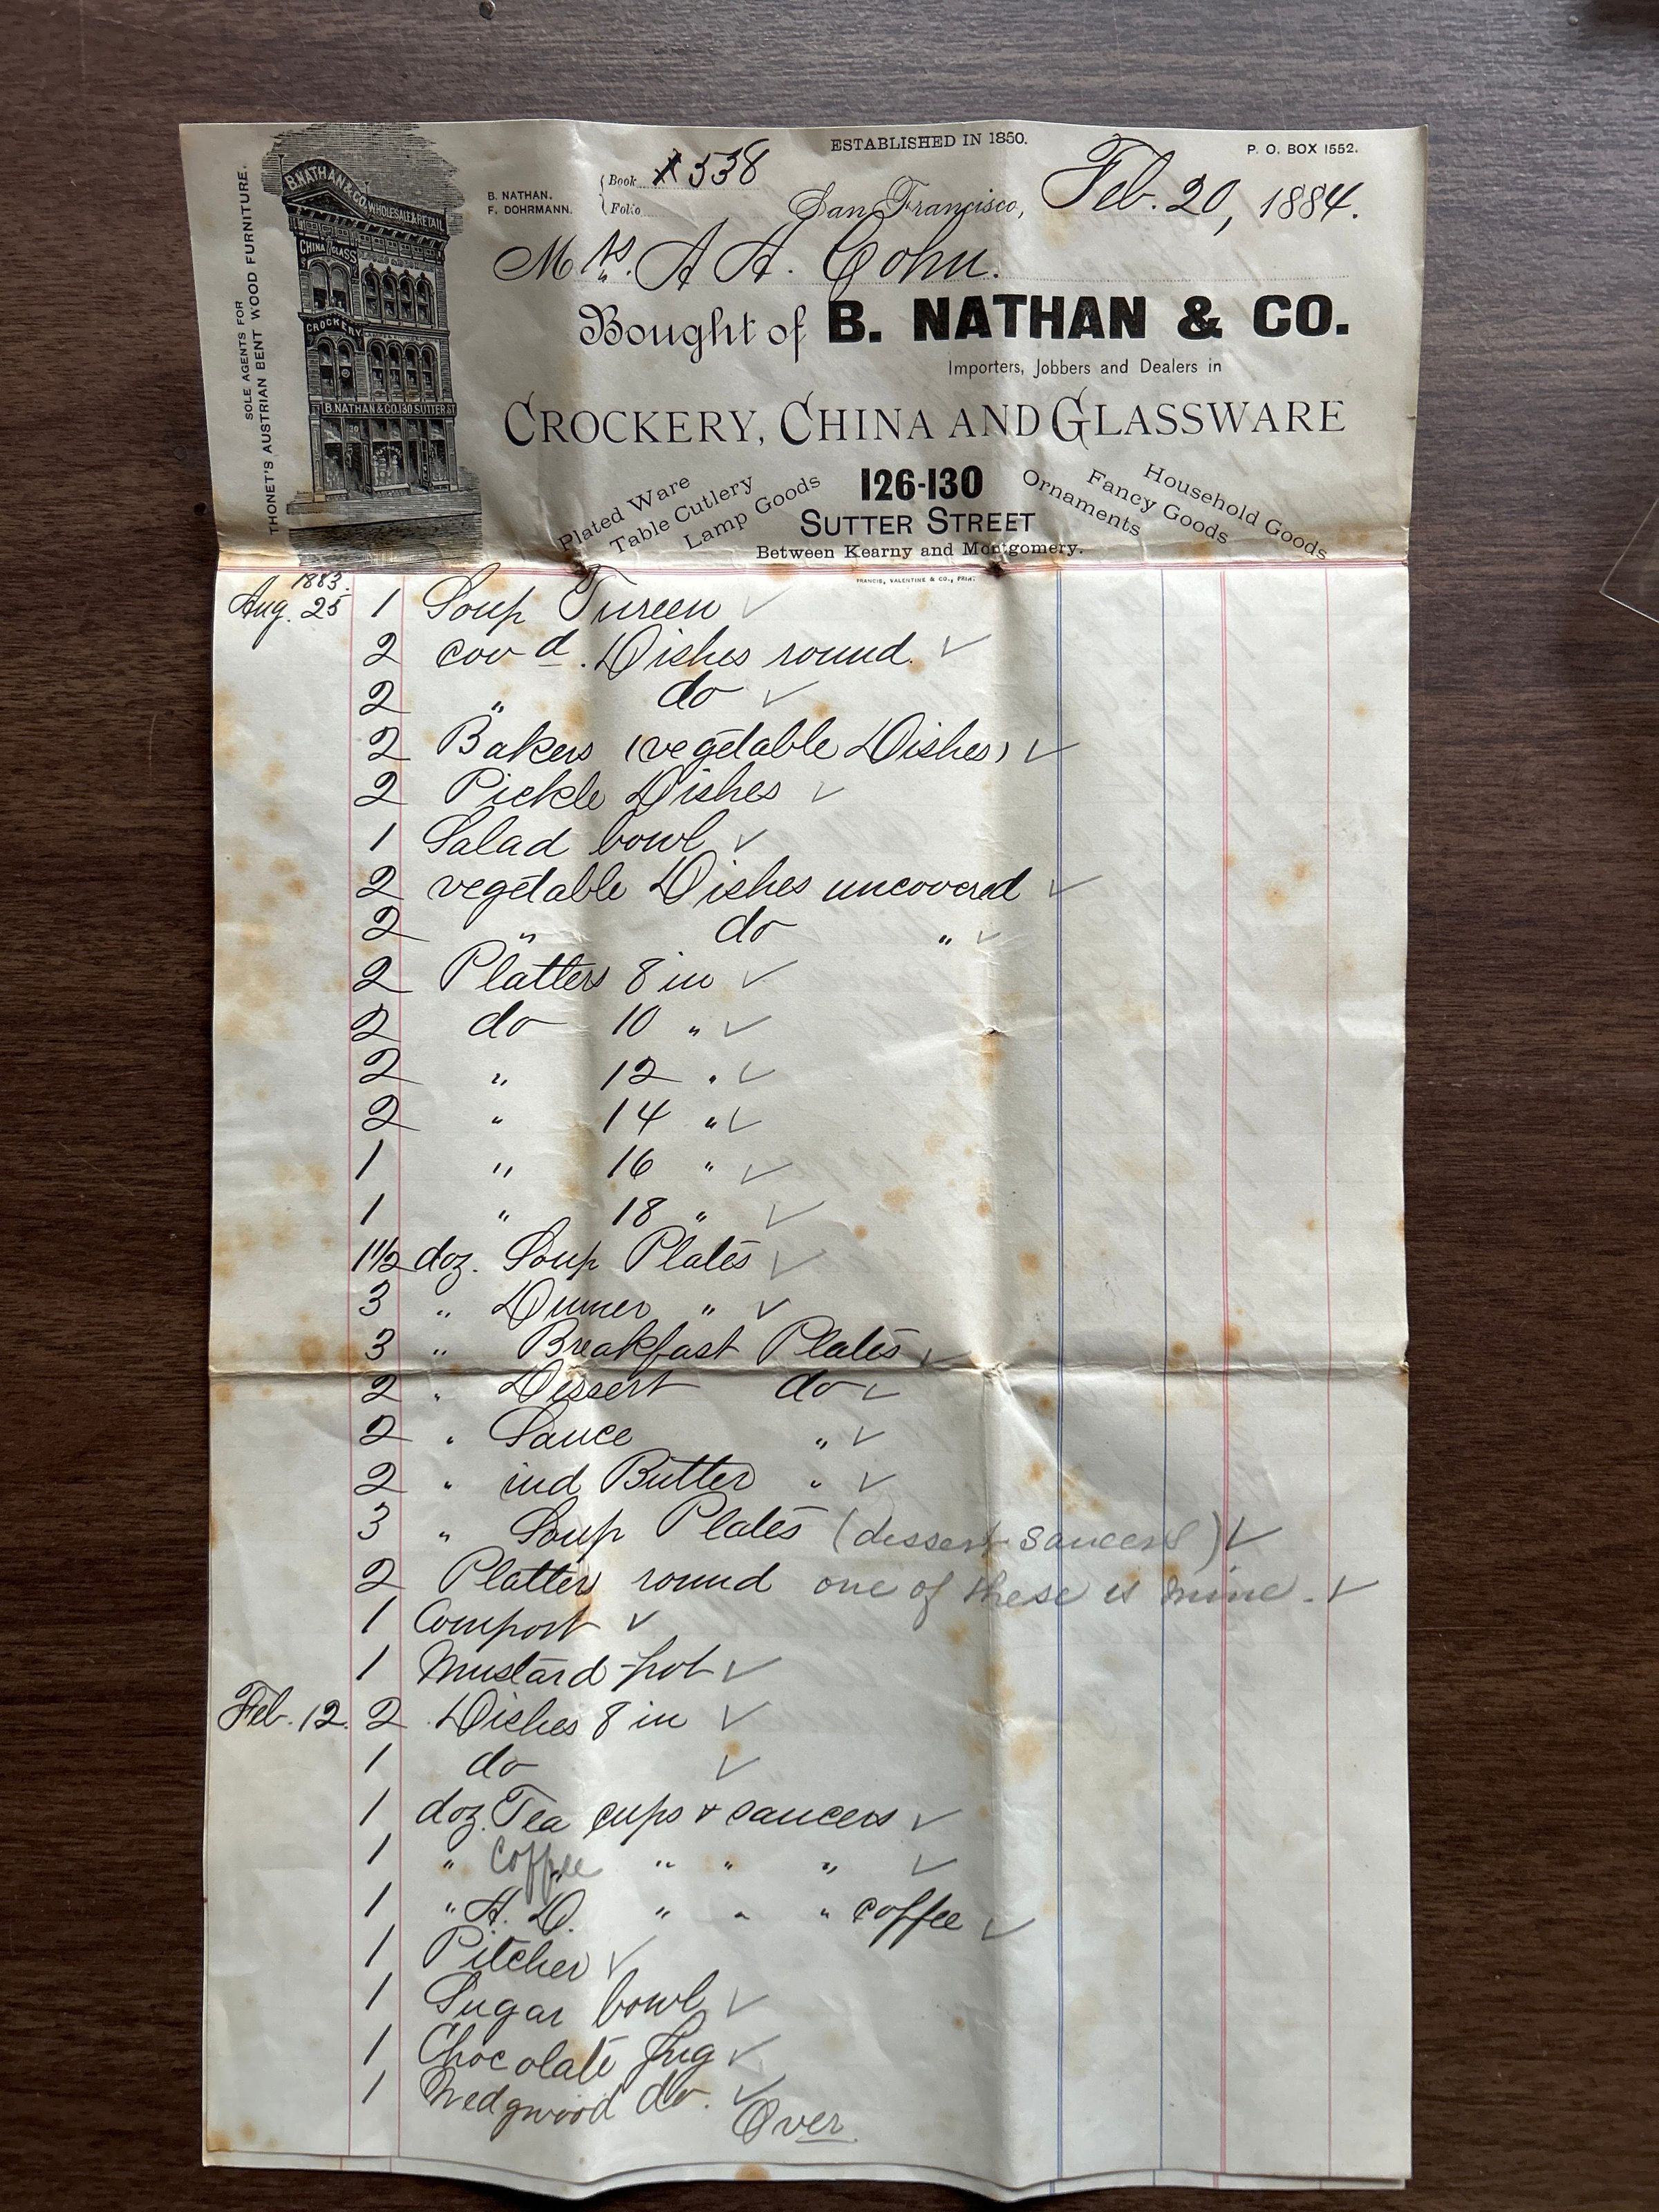 ESTABLISHED IN 1850.
P. O. BOX 1552.
Book 538
Folio
B. NATHAN.
F. DOHRMANN.
San Francisco, Feb. 20, 1884.
Mrs. A A. Cohn.
Bought of B. NATHAN & CO.
Importers, Jobbers and Dealers in
CROCKERY, CHINA AND GLASSWARE
Plated Ware
Table Cutlery
Lamp Goods
126-130
SUTTER STREET
Between Kearny and Montgomery.
Household Goods
Fancy Goods
Ornaments
FRANCIS, VALENTINE & CO., PRIN.
SOLE AGENTS FOR
THONET'S AUSTRIAN BENT WOOD FURNITURE.
B.NATHAN & CO. WHOLESALE & RETAIL
CHINA GLASS
CROCKERY
B.NATHAN & CO. 130 SUTTER ST
130
1883.
Aug. 25 1 Soup Tureen ✓
2 covd. Dishes round. ✓
2 " do ✓
2 Bakers (vegetable Dishes) ✓
2 Pickle Dishes ✓
1 Salad bowl ✓
2 vegetable Dishes uncovered ✓
2 " do " ✓
2 Platters 8 in ✓
2 do 10 " ✓
2 " 12 " ✓
2 " 14 " ✓
1 " 16 " ✓
1 " 18 " ✓
1 1/2 doz. Soup Plates ✓
3 " Dinner " ✓
3 " Breakfast Plates ✓
2 " Dessert do ✓
2 " Sauce " ✓
2 " ind Butter " ✓
3 " Soup Plates (dessert saucers) ✓
2 Platter round one of these is mine. ✓
1 Compost ✓
1 Mustard pot ✓
Feb. 12. 2 Dishes 8 in ✓
1 do ✓
1 doz. Tea cups & saucers ✓
1 " Coffee " " " ✓
1 " A. D. " " " coffee ✓
1 Pitcher ✓
1 Sugar bowl ✓
1 Chocolate Jug ✓
1 Wedgwood do. ✓
Over